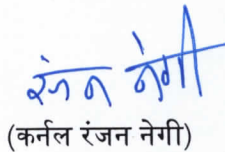 रंजन नेगी
(कर्नल रंजन नेगी)